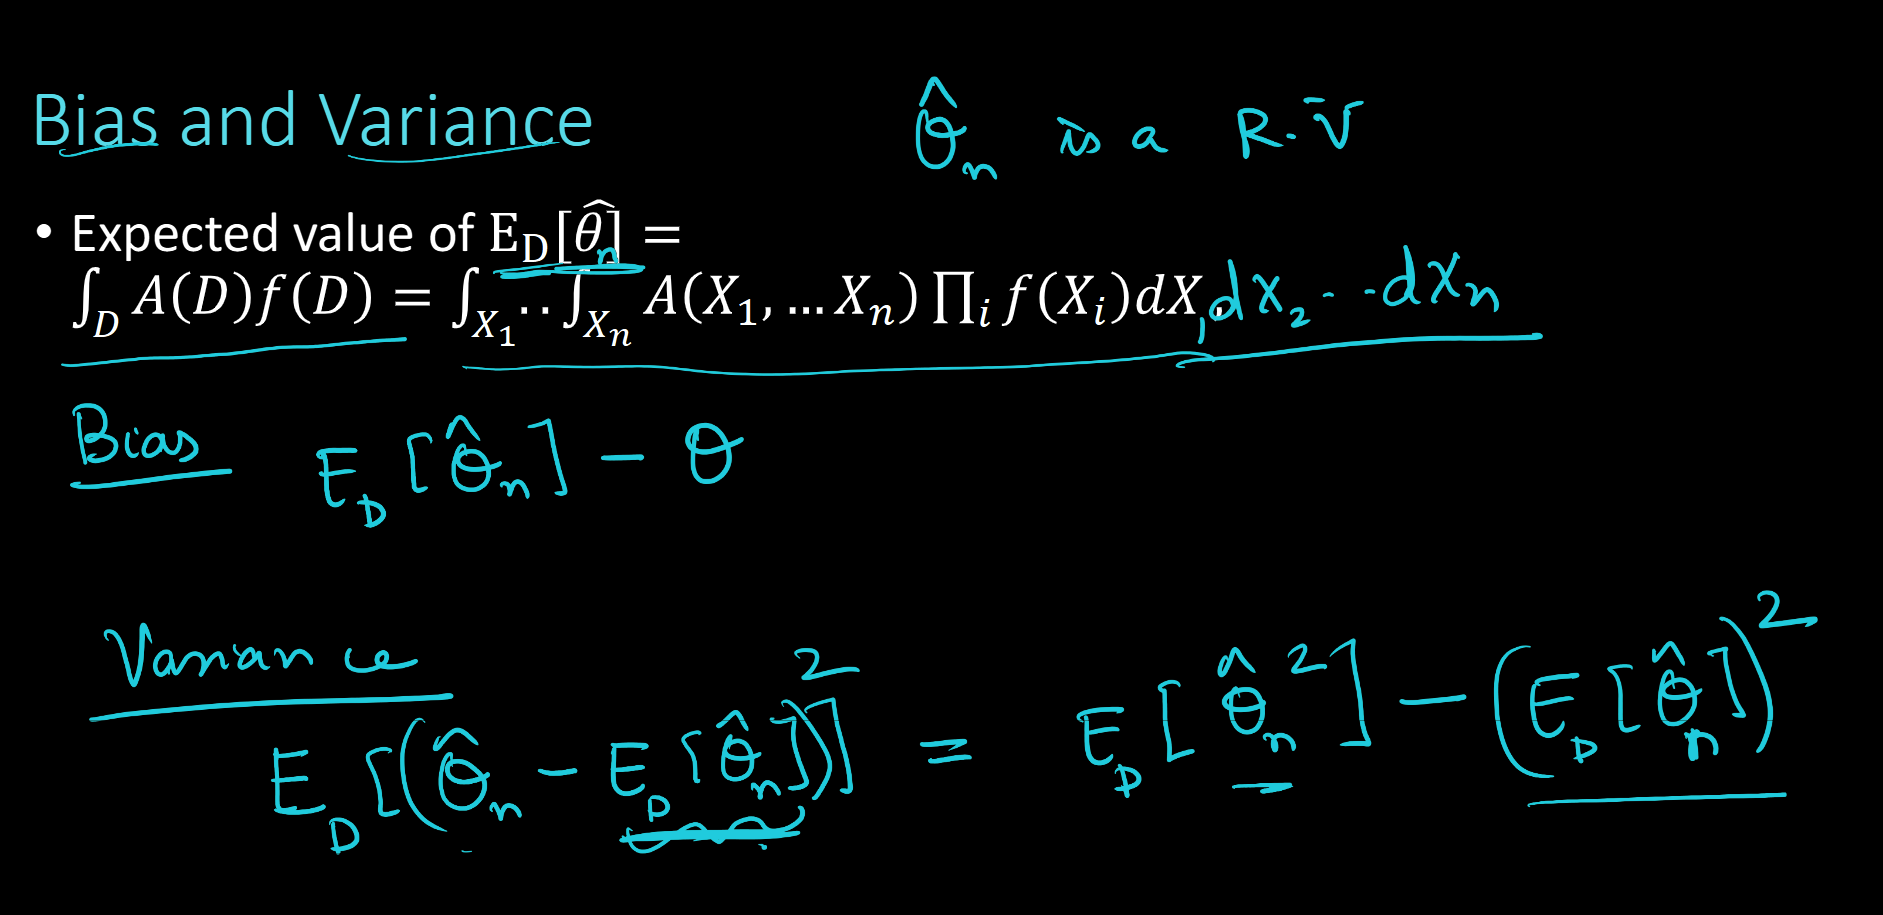 Bias and Variance
θ̂ₙ is a R.V
• Expected value of E_D[θ̂ₙ] =
∫_D A(D)f(D) = ∫_X₁ .. ∫_Xₙ A(X₁, … Xₙ) ∏ᵢ f(Xᵢ)dX₁, dX₂ - - dXₙ
Bias E_D [θ̂ₙ] − θ
Variance
E_D [(θ̂ₙ − E_D [θ̂ₙ])²] = E_D [θ̂ₙ²] − (E_D [θ̂ₙ])²